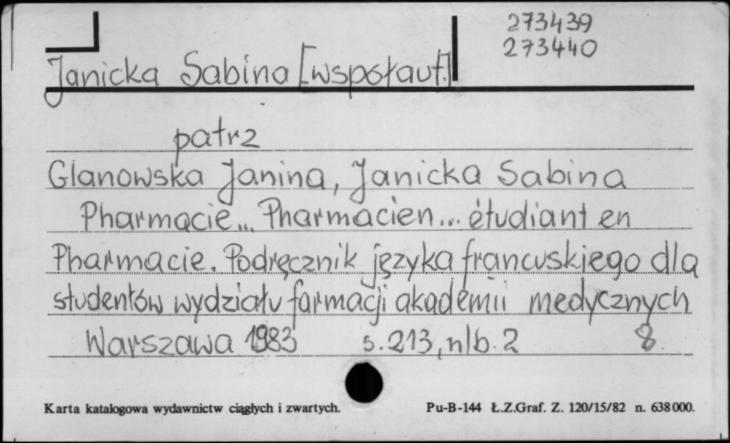 273439
273440
Janicka Sabina [współaut.]
patrz
Glanowska Janina, Janicka Sabina
Pharmacie... Pharmacien... étudiant en
Pharmacie. Podręcznik języka francuskiego dla
studentów wydziału farmacji akademii medycznych
Warszawa 1983 s. 213, nlb. 2 8
Karta katalogowa wydawnictw ciągłych i zwartych. Pu-B-144 Ł.Z.Graf. Z. 120/15/82 n. 638000.